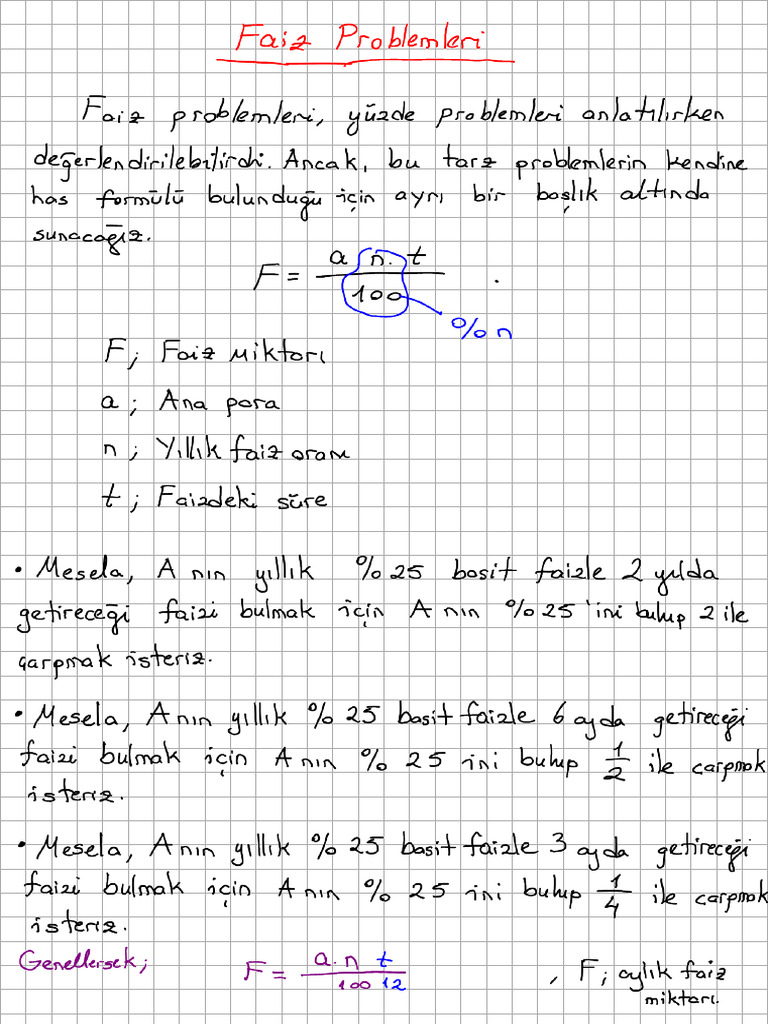 Faiz Problemleri
Faiz problemleri, yüzde problemleri anlatılırken
değerlendirilebilirdi. Ancak, bu tarz problemlerin kendine
has formülü bulunduğu için ayrı bir başlık altında
sunacağız.
F = a n. t / 100
% n
F; Faiz miktarı
a; Ana para
n; Yıllık faiz oranı
t; Faizdeki süre
• Mesela, A nın yıllık % 25 basit faizle 2 yılda
getireceği faizi bulmak için A nın % 25 'ini bulup 2 ile
çarpmak isteriz.
• Mesela, A nın yıllık % 25 basit faizle 6 ayda getireceği
faizi bulmak için A nın % 25 ini bulup 1/2 ile çarpmak
isteriz.
• Mesela, A nın yıllık % 25 basit faizle 3 ayda getireceği
faizi bulmak için A nın % 25 ini bulup 1/4 ile çarpmak
isteriz.
Genellersek; F = a.n t / 100 12 , F; aylık faiz
miktarı.